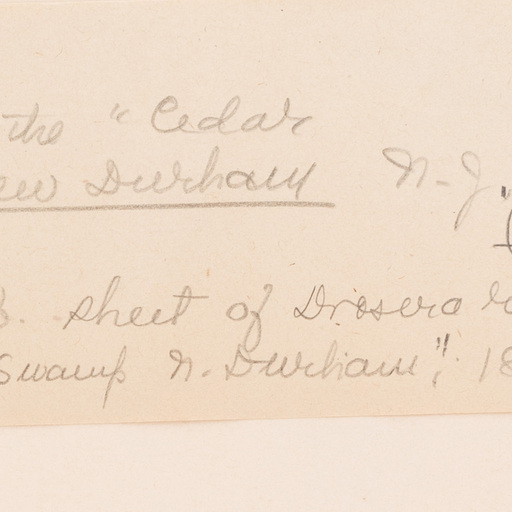 the "Cedar
ew Durham N-J"
B. sheet of Drosera ro
Swamp N. Durham", 18